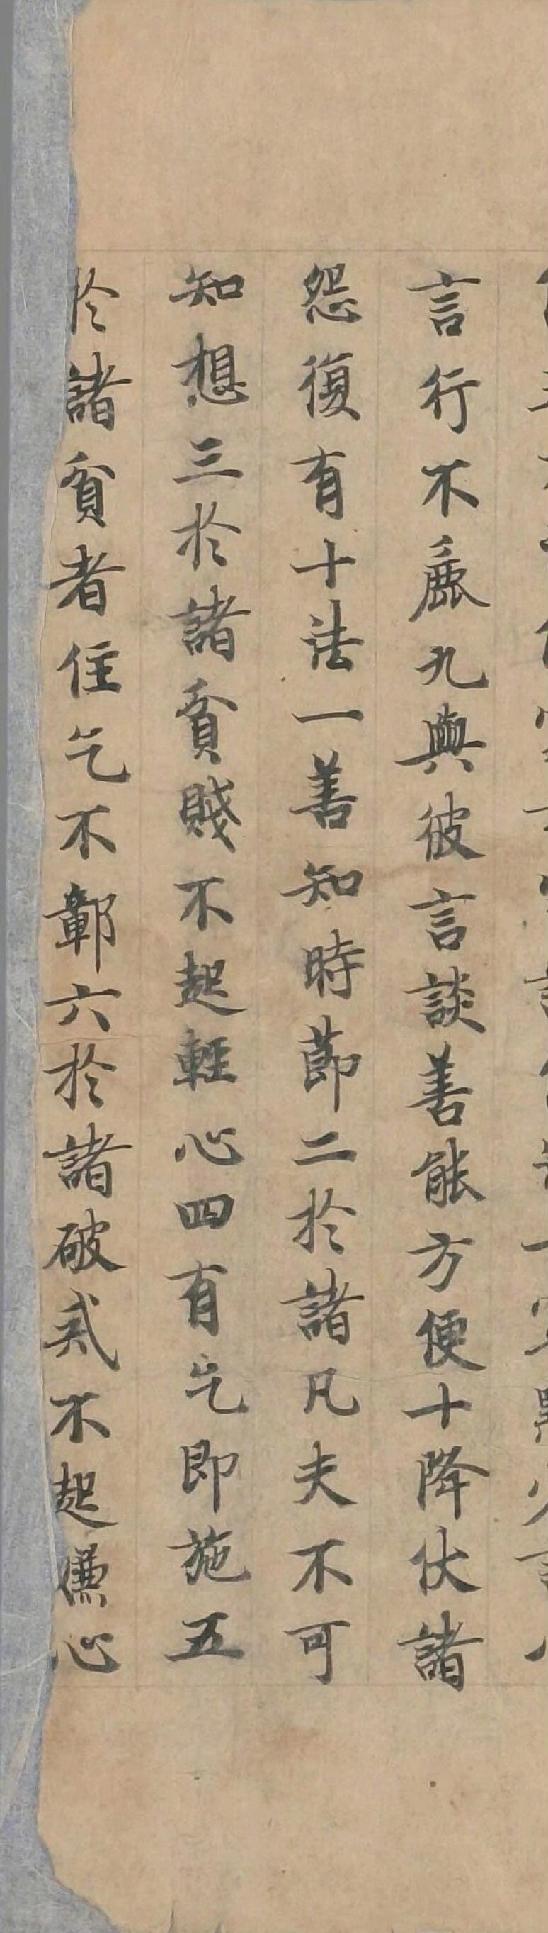 言行不麁九與彼言談善能方便十降伏諸
怨復有十法一善知時莭二於諸凡夫不可
知想三於諸貧賤不起輕心四有乞即施五
於諸貧者住乞不鄣六於諸破戒不起嫌心